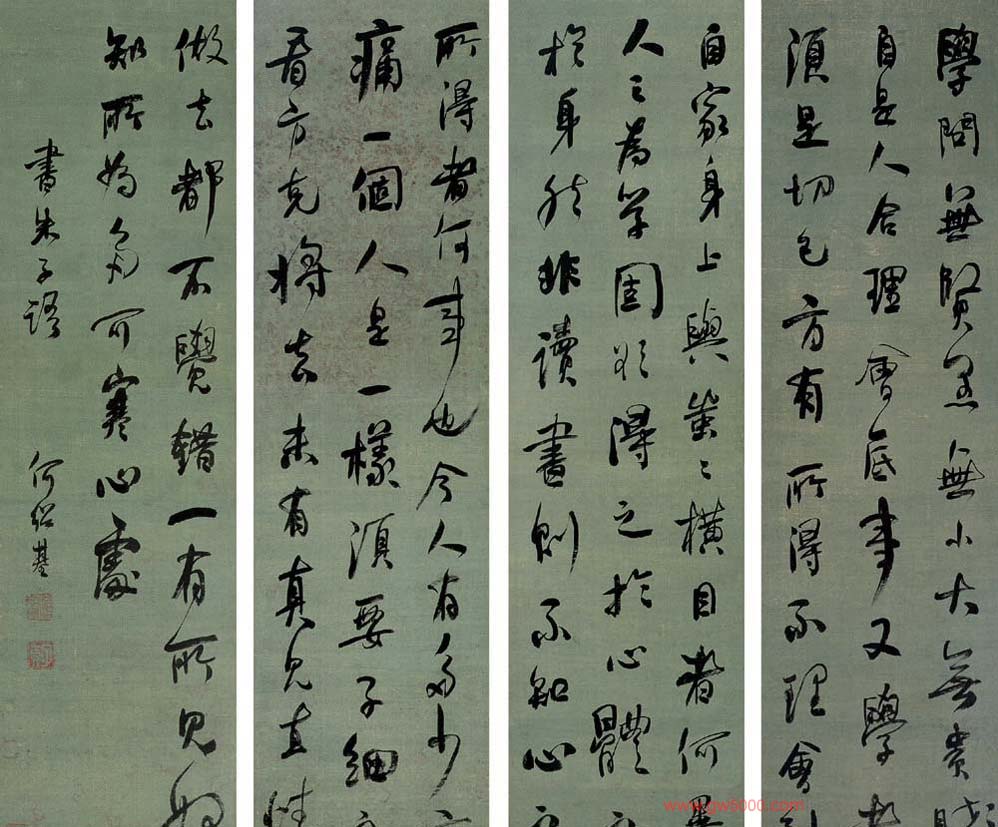 學問無賢愚無小大無貴賤
自是人合理會底事又學者
須是切己方有所得不理會到
自家身上與蚩々橫目者何異
人之為學固欲得之於心體
於身然非讀書則不知心
所得者何事也今人有多少
痛一個人是一樣須要子細
看方克將去未有真見直情
做去都不覺錯一有所見始
知所為多可寒心處
書朱子語 何紹基
www.gw5000.com